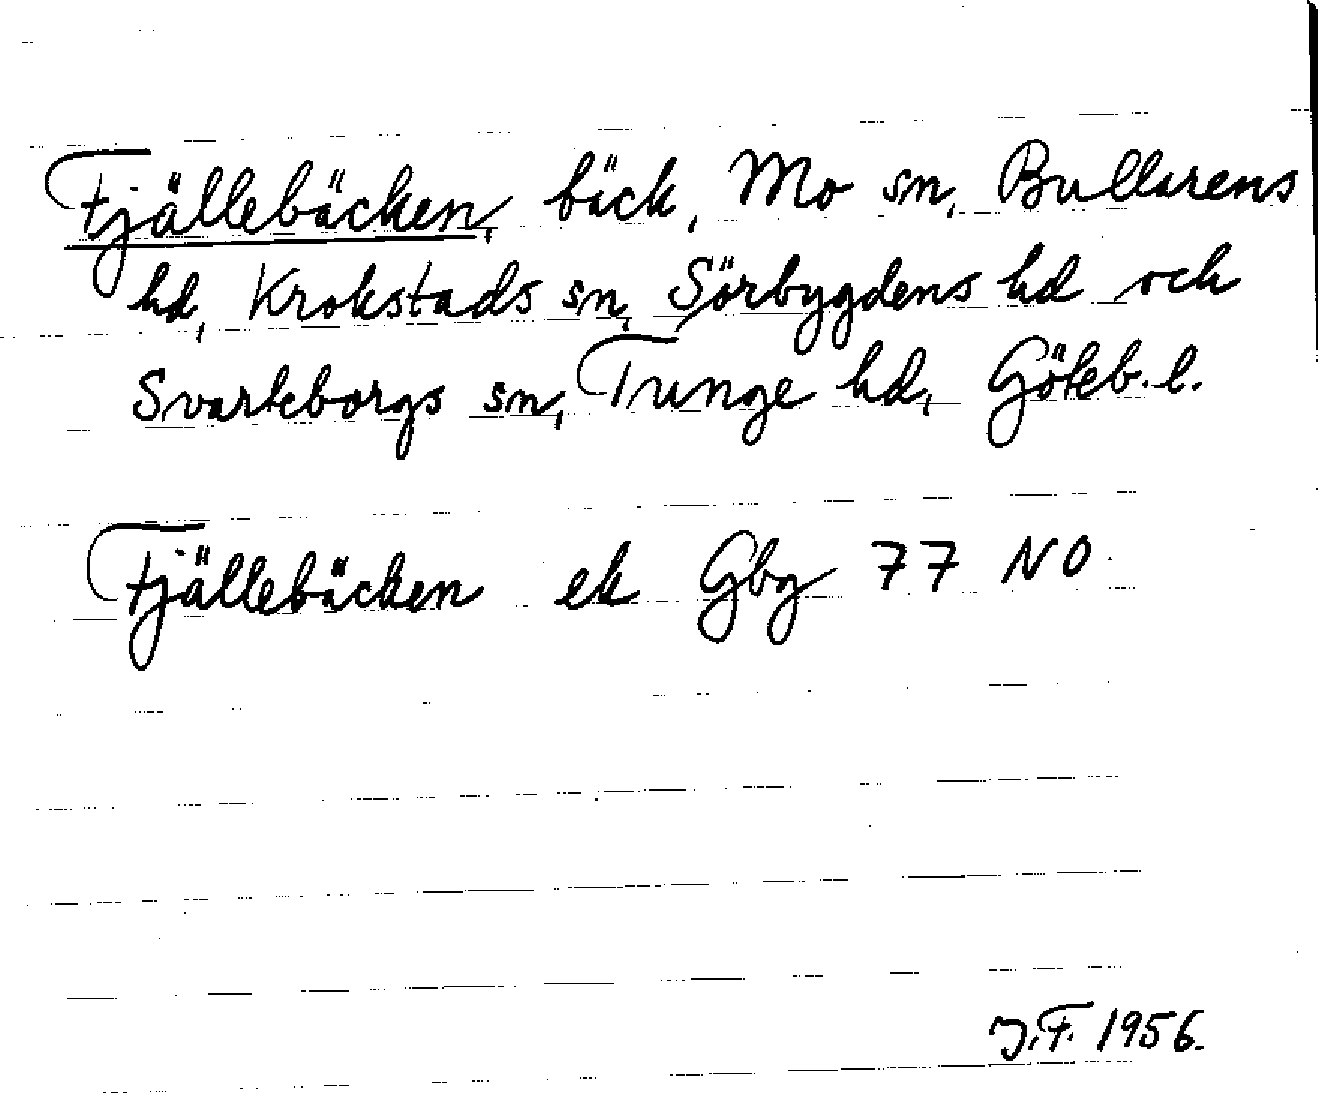 Fjällebäcken, bäck, Mo sn, Bullarens
hd, Krokstads sn, Sörbygdens hd och
Svarteborgs sn, Tunge hd, Göteb. l.
Fjällebäcken ek Gbg 77 NO
J.F. 1956.